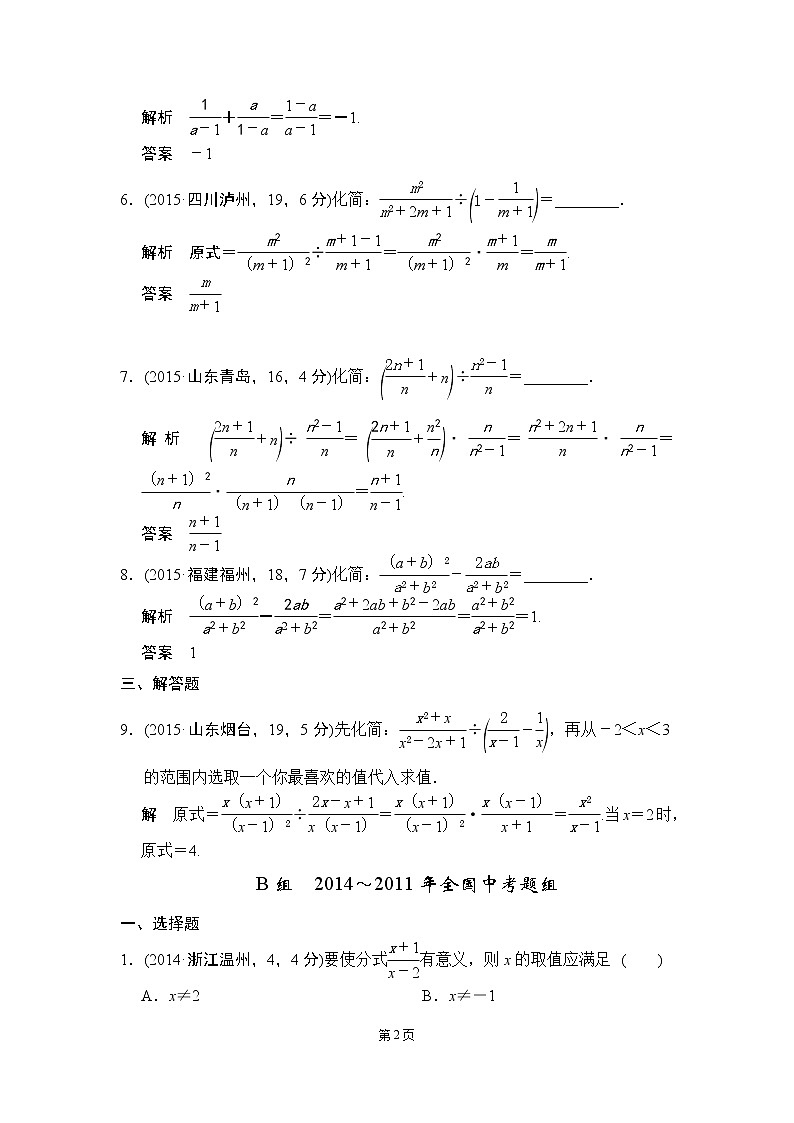 解析　1/(a－1)＋a/(1－a)＝(1－a)/(a－1)＝－1.
答案　－1
6．(2015·四川泸州，19，6分)化简：m²/(m²＋2m＋1)÷(1－1/(m＋1))＝________．
解析　原式＝m²/(m＋1)²÷(m＋1－1)/(m＋1)＝m²/(m＋1)²·(m＋1)/m＝m/(m＋1).
答案　m/(m＋1)
7．(2015·山东青岛，16，4分)化简：((2n＋1)/n＋n)÷(n²－1)/n＝________．
解 析　((2n＋1)/n＋n)÷(n²－1)/n＝((2n＋1)/n＋n²/n)·n/(n²－1)＝(n²＋2n＋1)/n·n/(n²－1)＝
(n＋1)²/n·n/((n＋1)(n－1))＝(n＋1)/(n－1).
答案　(n＋1)/(n－1)
8．(2015·福建福州，18，7分)化简：(a＋b)²/(a²＋b²)－2ab/(a²＋b²)＝________．
解析　(a＋b)²/(a²＋b²)－2ab/(a²＋b²)＝(a²＋2ab＋b²－2ab)/(a²＋b²)＝(a²＋b²)/(a²＋b²)＝1.
答案　1
三、解答题
9．(2015·山东烟台，19，5分)先化简：(x²＋x)/(x²－2x＋1)÷(2/(x－1)－1/x)，再从－2＜x＜3
的范围内选取一个你最喜欢的值代入求值．
解　原式＝x(x＋1)/(x－1)²÷(2x－x＋1)/(x(x－1))＝x(x＋1)/(x－1)²·x(x－1)/(x＋1)＝x²/(x－1).当x＝2时，
原式＝4.
B组　2014～2011年全国中考题组
一、选择题
1．(2014·浙江温州，4，4分)要使分式(x＋1)/(x－2)有意义，则x的取值应满足 (　　)
A．x≠2　　B．x≠－1
第2页